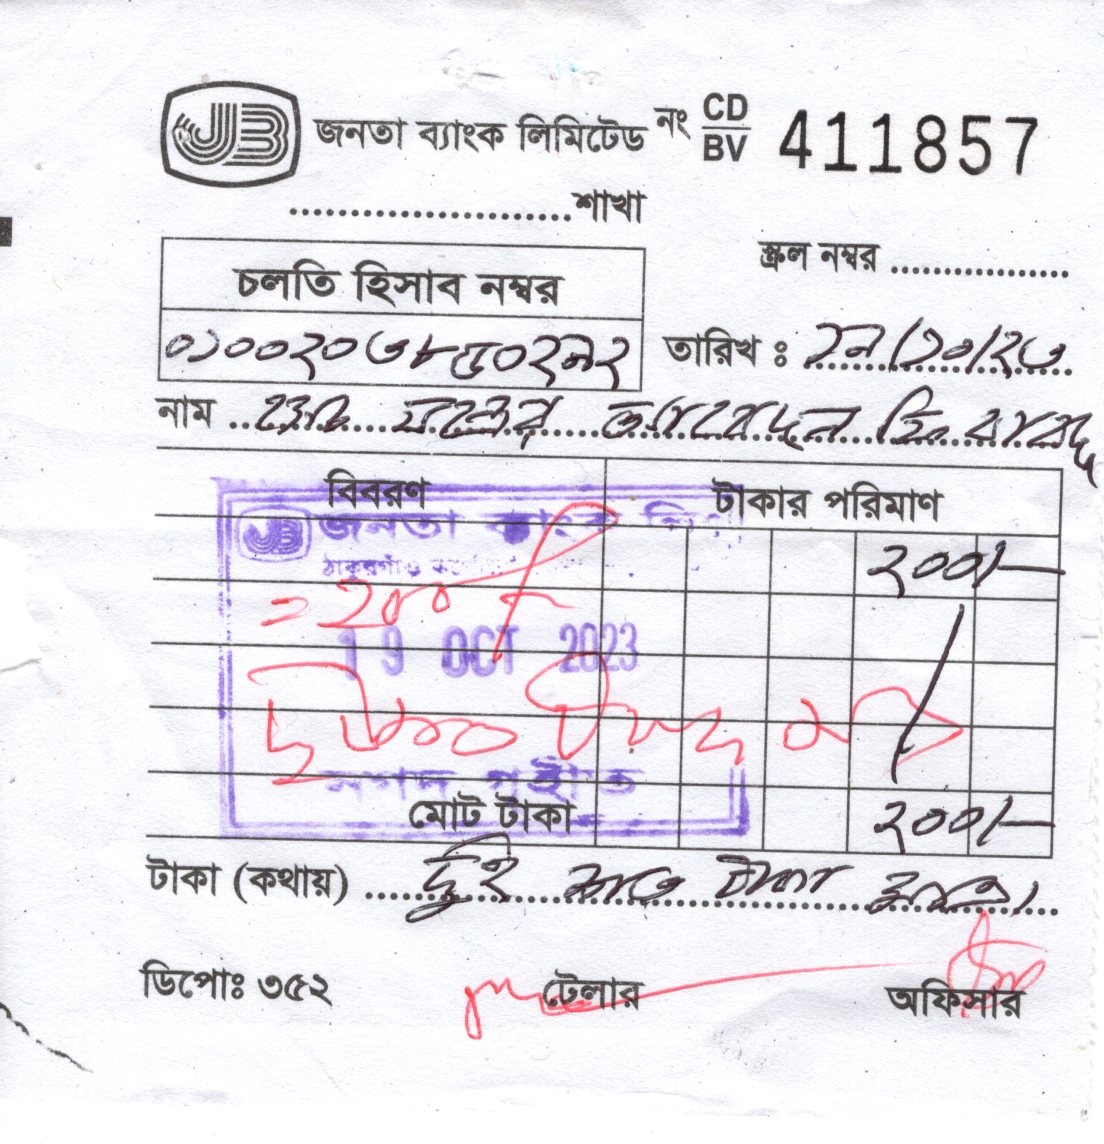 JB জনতা ব্যাংক লিমিটেড নং CD/BV 411857
........................শাখা
স্ক্রল নম্বর ..................
চলতি হিসাব নম্বর
তারিখ : ১৯/১০/২৩
নাম
বিবরণ টাকার পরিমাণ
JB জনতা ব্যাংক লিঃ
ঠাকুরগাঁও
২০০/-
= ২০০/-
19 OCT 2023
নগদ গ্রহীত
মোট টাকা ২০০/-
টাকা (কথায়) দুই শত টাকা মাত্র।
ডিপোঃ ৩৫২ টেলার অফিসার